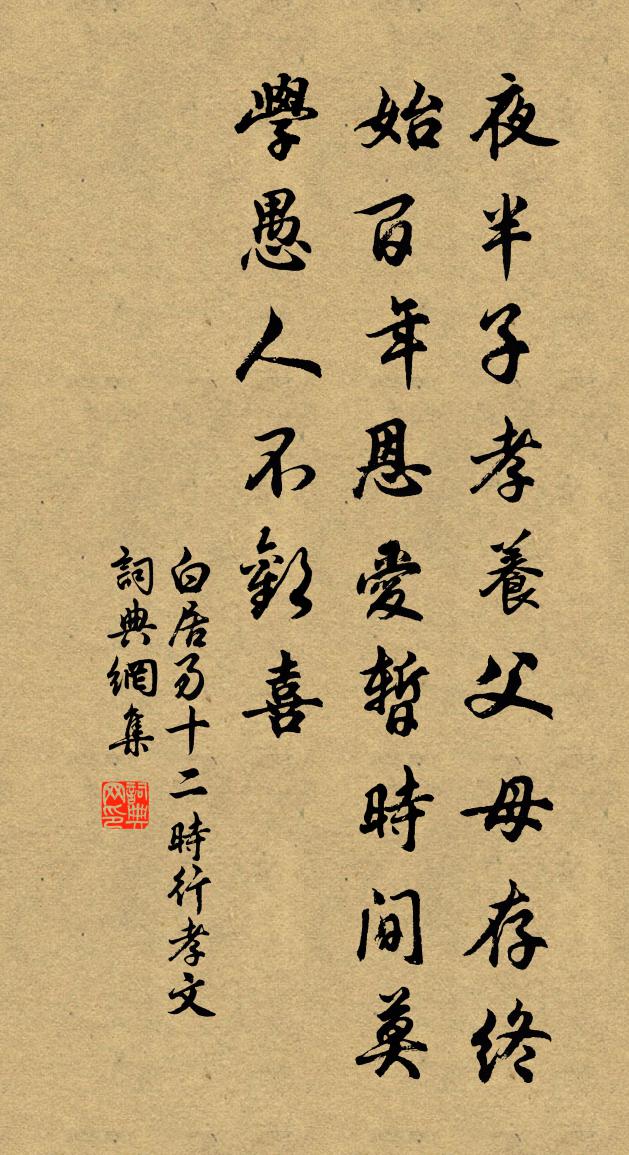 夜半子孝養父母存終
始百年恩愛暫時間莫
學愚人不歡喜
白居易十二時行孝文
詞典網集
詞典网印